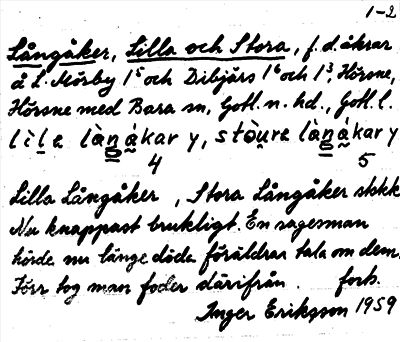 1-2
Långåker, Lilla och Stora, f. d. åkrar
å L. Mörby 1⁵ och Dibjärs 1⁶ och 1³, Hörsne,
Hörsne med Bara sn, Gotl. n. hd., Gotl. l.
lìle làŋákar y, stòure làŋákar y
4 5
Lilla Långåker, Stora Långåker
Nu knappast brukligt. En sagesman
hörde nu länge döda föräldrar tala om dem.
Förr tog man foder därifrån. forts.
Inger Eriksson 1959